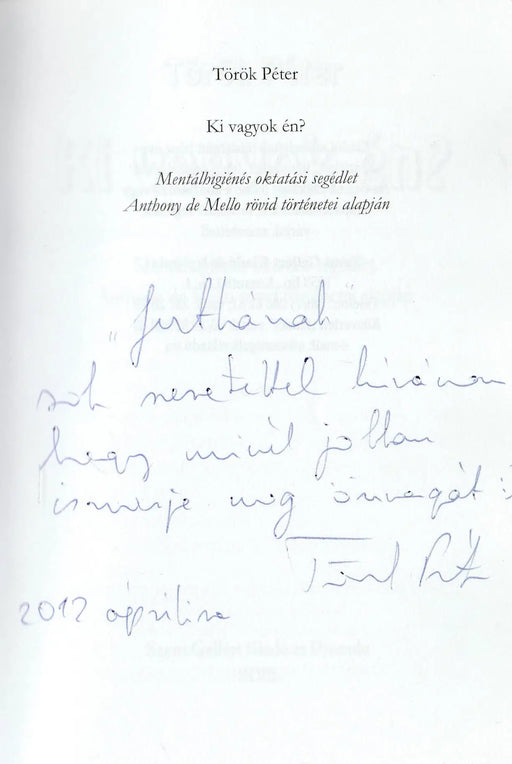 Török Péter
Ki vagyok én?
Mentálhigiénés oktatási segédlet
Anthony de Mello rövid történetei alapján
sok szeretettel kívánom
hogy minél jobban
ismerje meg önmagát :
Török Péter
2012 áprilisa